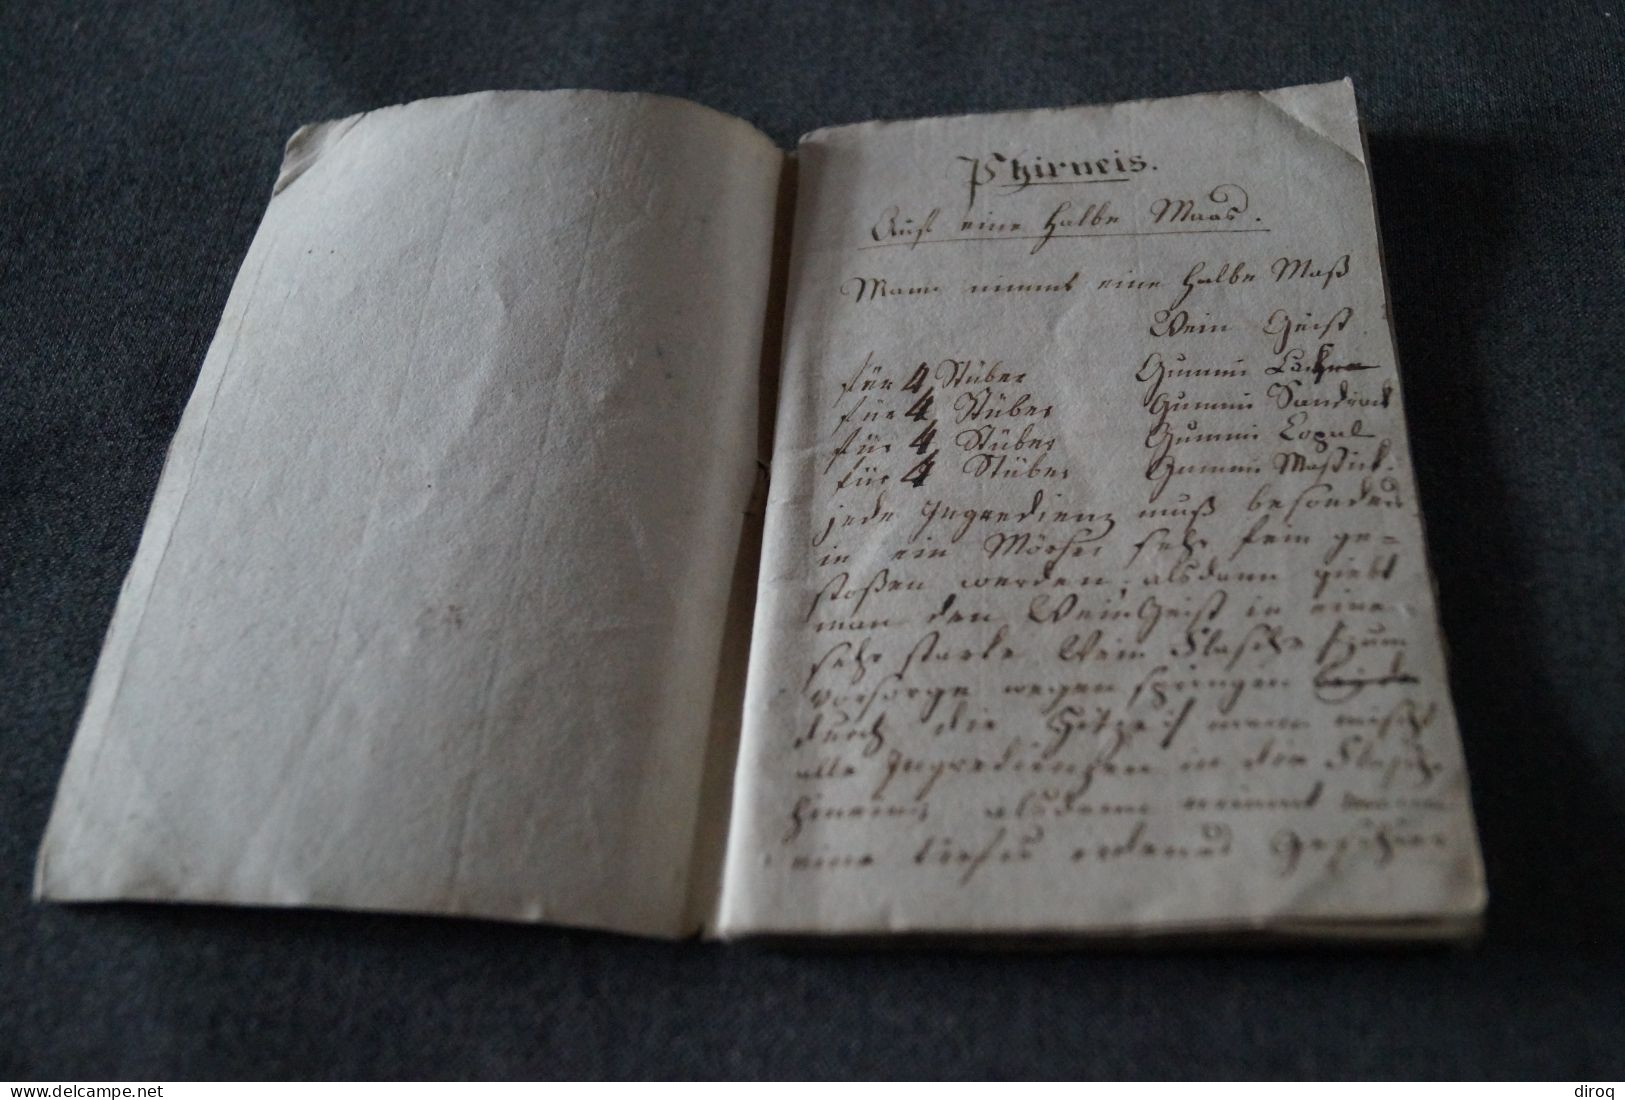 Phirneis.
Auf eine halbe Maas.
Mann nimmt eine halbe Maß
Wein Geist
für 4 Stüber Gummi
für 4 Stüber Gummi Sandrack
für 4 Stüber Gummi Copal
für 4 Stüber Gummi Mastick.
jede Ingredienz muß besonders
in ein Mörser sehr fein ge=
stoßen werden, alsdann giebt
man den WeinGeist in eine
sehr starke Wein Flasche zum
vorsorge wegen springen
durch die Hitze mann mischt
alle Ingredienzen in die Flasche
hinein, alsdann nimmt mann
eine tiefes erdenes Geschirr
www.delcampe.net
diroq